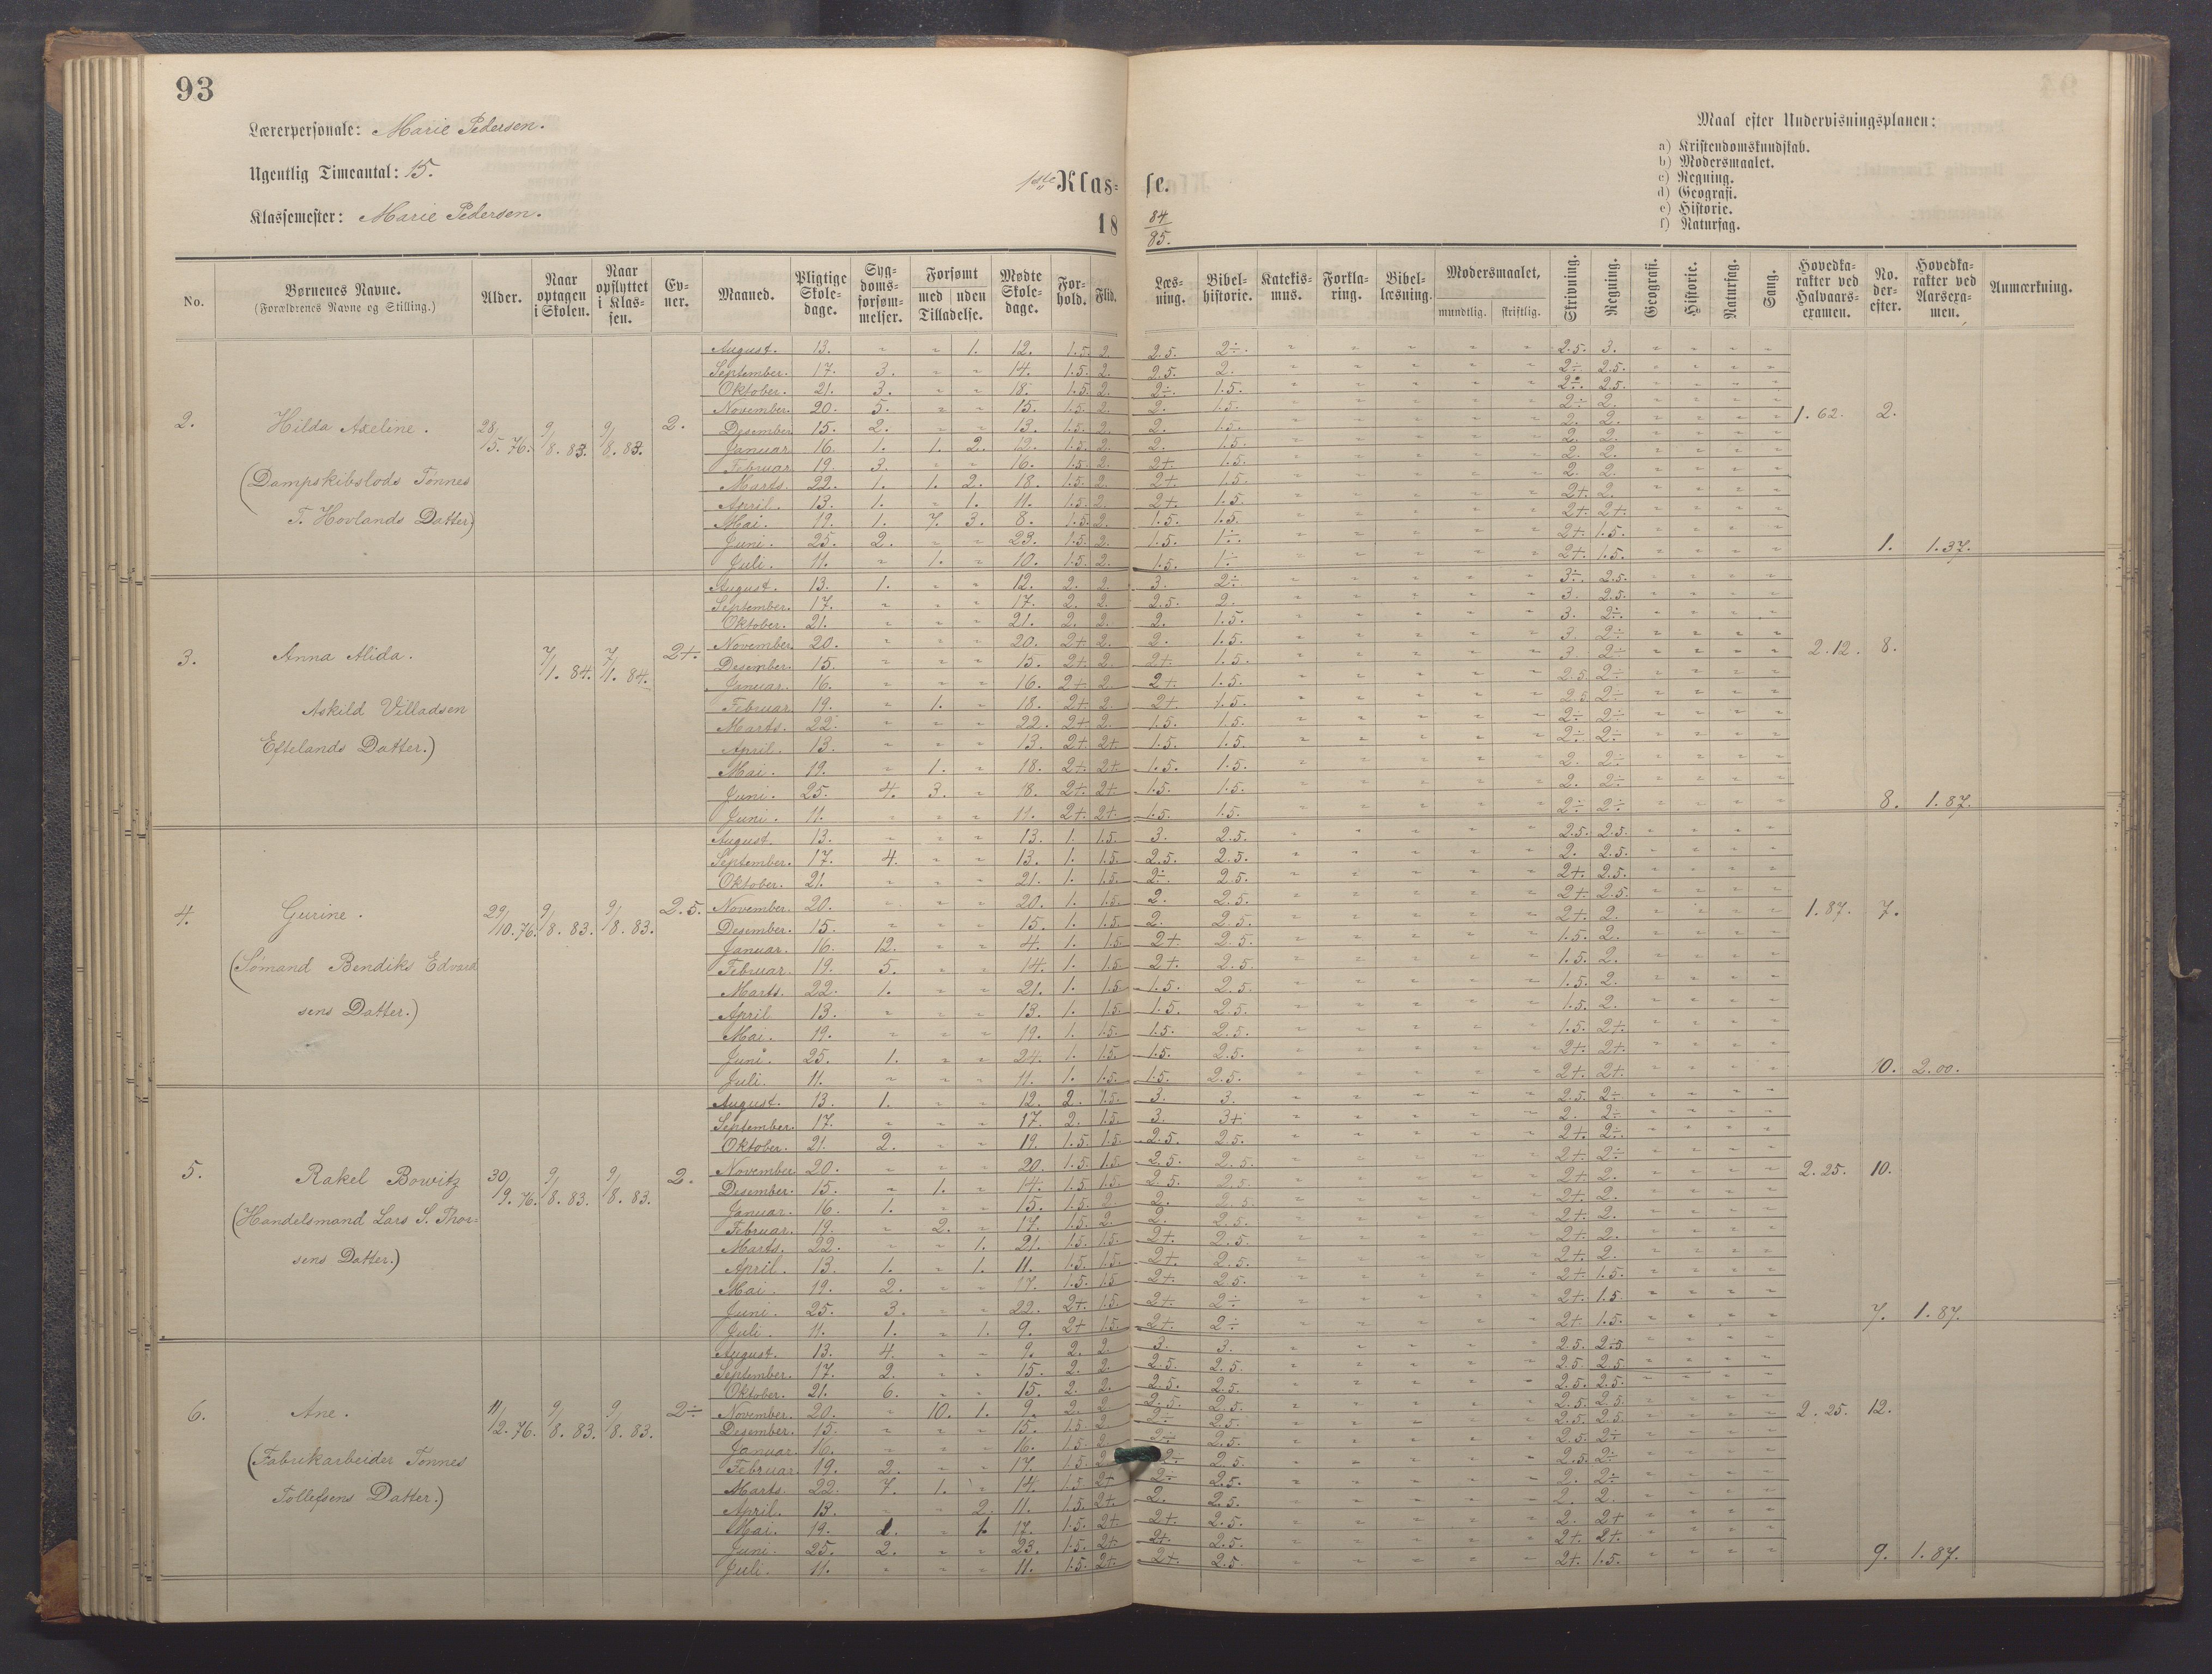 93
Lærerpersonale: Marie Pedersen.
Ugentlig Timeantal: 15.
Klassemester: Marie Pedersen.
1ste Klas- se.
18 84/85.
Maal efter Undervisningsplanen:
a) Kristendomskundskab.
b) Modersmaalet.
c) Regning.
d) Geografi.
e) Historie.
f) Naturfag.
No. Børnenes Navne. (Forældrenes Navne og Stilling.) Alder. Naar optagen i Skolen. Naar opflyttet i Klassen. Evner. Maaned. Pligtige Skoledage. Sygdomsforsømmelser. Forsømt med uden Tilladelse. Mødte Skoledage. Forhold. Flid. Læsning. Bibelhistorie. Katekismus. Forklaring. Bibellæsning. Modersmaalet, mundtlig. skriftlig. Skrivning. Regning. Geografi. Historie. Naturfag. Sang. Hovedkarakter ved Halvaarsexamen. No. derefter. Hovedkarakter ved Aarsexamen. Anmærkning.
2. Hilda Axeline. 28/5. 76. 9/8. 83. 9/8. 83. 2. 1.62. 2.
(Dampskibslods Tønnes
T. Hovlands Datter)
August. 13. " " 1. 12. 1.5. 2. 2.5. 2÷. 2.5. 3.
September. 17. 3. " " 14. 1.5. 2. 2.5. 2. 2÷ 2.5.
Oktober. 21. 3. " " 18. 1.5. 2. 2÷. 1.5. 2÷. 2.5.
November. 20. 5. " " 15. 1.5. 2. 2. 1.5. 2÷ 2.
Desember. 15. 2. " " 13. 1.5. 2. 2. 1.5. 2. 2.
Januar. 16. 1. 1. 2. 12. 1.5. 2. 2. 1.5. 2. 2.
Februar. 19. 3. " " 16. 1.5. 2. 2+. 1.5. 2. 2.
Marts. 22. 1. 1. 2. 18. 1.5. 2. 2+. 1.5. 2. 2.
April. 13. 1. " 1. 11. 1.5. 2. 2+. 1.5. 2+. 2.
Mai. 19. 1. 7. 3. 8. 1.5. 2. 1.5. 1.5. 2+. 2+.
Juni. 25. 2. " " 23. 1.5. 2. 1.5. 1÷. 2+. 1.5.
Juli. 11. " 1. " 10. 1.5. 2. 1.5. 1÷ 2+. 1.5. 1. 1.37.
3. Anna Alida. 7/1. 84. 7/1. 84. 2+. 2.12. 8.
Askild Villadsen
Eftelands Datter.)
August. 13. 1. " " 12. 2. 2. 3. 2÷ 3÷. 2.5.
September. 17. " " " 17. 2. 2. 2.5. 2. 3. 2.5.
Oktober. 21. " " " 21. 2. 2. 2. 1.5. 3. 2÷
November. 20. " " " 20. 2+ 2. 2. 1.5. 3. 2÷
Desember. 15. " " " 15. 2+ 2. 2+. 1.5. 3. 2÷
Januar. 16. " " " 16. 2+ 2. 2+. 1.5. 2.5. 2÷
Februar 19. " 1. " 18. 2+ 2. 2+ 1.5. 2.5. 2÷
Marts. 22. " " " 22. 2+ 2. 1.5. 1.5. 2÷ 2÷
April. 13. " " " 13. 2+ 2+ 1.5. 1.5. 2÷. 2÷.
Mai. 19. " 1. " 18. 2+. 2+ 1.5. 1.5. 2. 2÷
Juni. 25. 4. 3. " 18. 2+. 2+ 1.5. 1.5. 2. 2÷
Juni. 11. " " " 11. 2+. 2+. 1.5. 1.5. 2÷ 2÷ 8. 1.87.
4. Gurine. 29/10. 76. 9/8. 83. 9/8. 83. 2.5. 1.87. 7.
(Sømand Bendiks Edvard
sens Datter.)
August. 13. " " " 13. 1. 1.5. 3. 2.5. 2.5. 2.5.
September. 17. 4. " " 13. 1. 1.5. 2.5. 2.5. 2. 2.5.
Oktober. 21. " " " 21. 1. 1.5. 2÷. 2.5. 2+. 2.5.
November. 20. " " " 20. 1. 1.5. 2. 2.5. 2+. 2.5.
Desember. 15. " " " 15. 1. 1.5. 2. 2.5. 2+. 2.
Januar. 16. 12. " " 4. 1. 1.5. 2+. 2.5. 1.5. 2.
Februar. 19. 5. " " 14. 1. 1.5. 2+. 2.5. 1.5. 2.
Marts. 22. 1. " " 21. 1. 1.5. 1.5. 2.5. 1.5. 2.
April 13. " " " 13. 1. 1.5. 1.5. 2.5. 1.5. 2.
Mai. 19. " " " 19. 1. 1.5. 1.5. 2.5. 1.5. 2+.
Juni. 25. 1. " " 24. 1. 1.5. 1.5. 2.5. 2+. 2+.
Juli. 11. " " " 11. 1. 1.5. 1.5. 2.5. 2+. 2+. 10. 2.00.
5. Rakel Bowitz 30/9. 76. 9/8. 83. 9/8. 83. 2. 2.25. 10.
(Handelsmand Lars S. Thor-
sens Datter.)
August. 13. 1. " " 12. 2. 1.5. 3. 3. 2.5. 2÷
September. 17. " " " 17. 2. 1.5. 3. 3+. 2. 2÷
Oktober. 21. 2. " " 19. 1.5. 1.5. 2.5. 2.5. 2+. 2÷.
November. 20. " " " 20. 1.5. 1.5. 2.5. 2.5. 2+. 2÷
Desember. 15. " 1. " 14. 1.5. 1.5. 2.5. 2.5. 2+. 2.
Januar. 16. 1. " " 15. 1.5. 2. 2. 2.5. 2+. 2.
Februar. 19. " 2. " 17. 1.5. 2. 2. 2.5. 2+. 2.
Marts. 22. " " 1. 21. 1.5. 1.5. 2+. 2.5. 2+. 2.
April. 13. 1. " 1. 11. 1.5. 1.5. 2+. 2.5. 2+. 2.
Mai. 19. 2. " " 17. 1.5. 1.5 2+. 2.5. 2+. 1.5.
Juni. 25. 3. " " 22. 2+. 1.5. 2+. 2÷ 2+. 1.5
Juli. 11. 1. " 1. 9. 2+ 1.5. 2+. 2÷ 2+. 1.5. 7. 1.87.
6. Ane. 11/12. 76. 9/8. 83. 9/8. 83. 2÷ 2.25. 12.
(Fabrikarbeider Tønnes
Tollefsens Datter.)
August. 13. 4. " " 9. 2. 2. 3. 3. 2.5. 2.5
September. 17. 2. " " 15. 2. 2. 2.5. 2.5. 2.5. 2.5.
Oktober. 21. 6. " " 15. 2. 2. 2.5. 2.5. 2.5. 2.5.
November. 20. " 10. 1. 9. 2. 2. 2.5. 2.5. 2.5. 2.5.
Desember. 15. " " " 15. 1.5. 2. 2÷ 2.5. 2.5. 2.5.
Januar. 16. " " " 16. 1.5. 2. 2÷ 2.5. 2.5. 2÷
Februar. 19. 2. " " 17. 1.5. 2 2÷ 2.5. 2.5. 2÷
Marts. 22. 7. 1. " 14. 1.5 2+ 2÷ 2.5. 2. 2÷
April. 13. " " 2. 11. 1.5. 2+. 2. 2.5. 2. 2.
Mai. 19. 1. " 1. 17. 1.5. 2+ 2+ 2.5. 2. 2+
Juni. 25. 2. " " 23. 1.5. 2+ 2+. 2.5. 2+ 2+.
Juli. 11. " " " 11. 1.5 2+. 2+. 2.5 2+. 1.5. 9. 1.87.